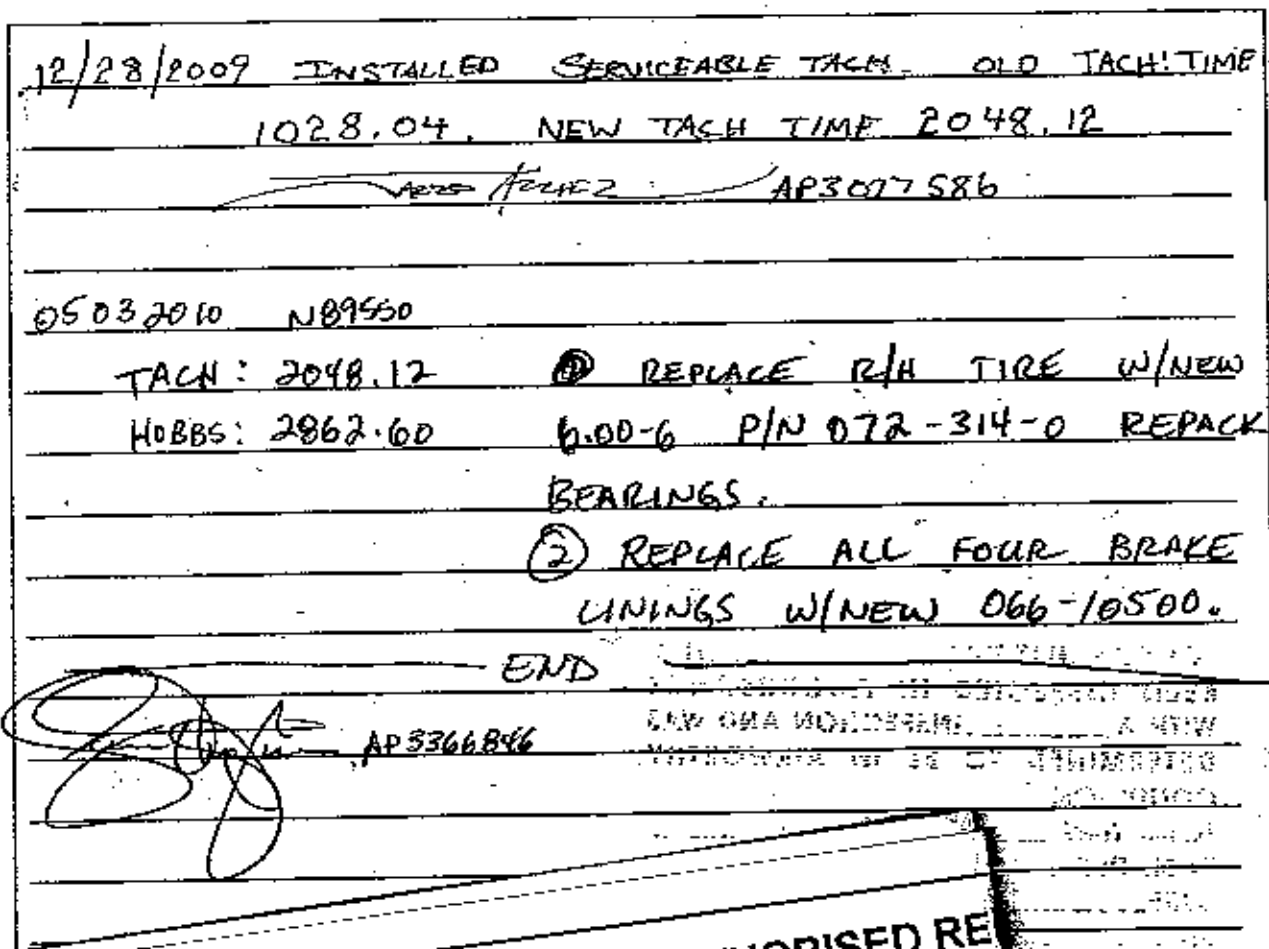 12/28/2009 INSTALLED SERVICEABLE TACH. OLD TACH! TIME
1028.04. NEW TACH TIME 2048.12
AP3077586
05032010 N89550
TACH: 2048.12 ① REPLACE R/H TIRE W/NEW
HOBBS: 2862.60 6.00-6 P/N 072-314-0 REPACK
BEARINGS.
② REPLACE ALL FOUR BRAKE
LININGS W/NEW 066-10500.
END
AP3366846
ORISED RE